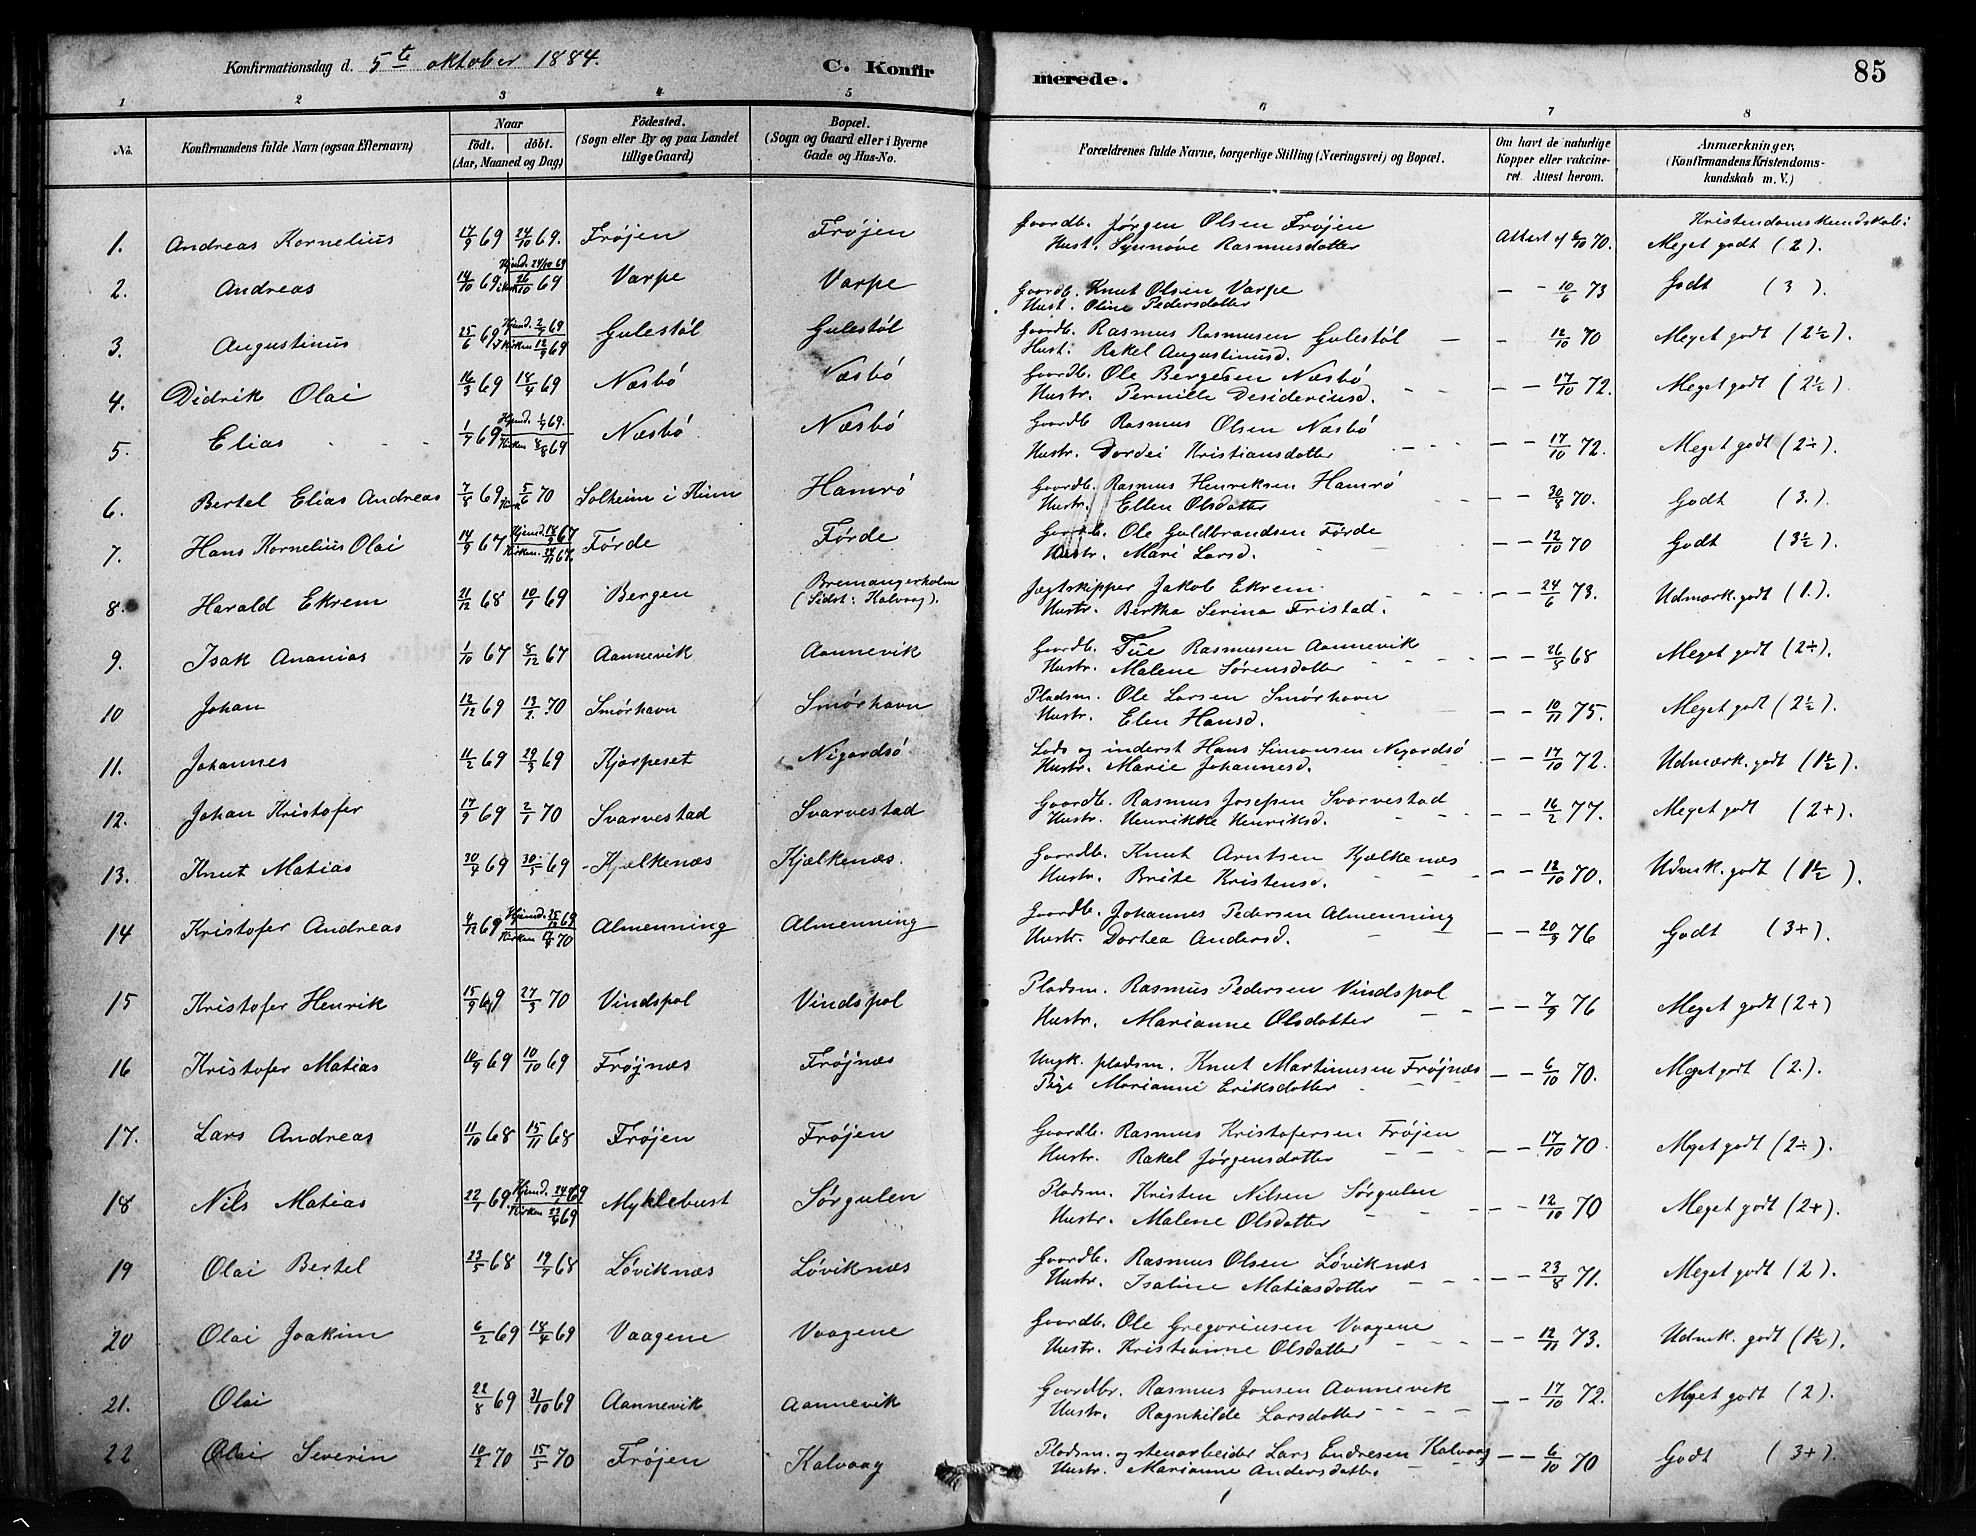 Konfirmationsdag d. 5te oktober 1884.
C. Konfir
merede.
85
1 2 3 4 5 6 7 8
No.
Konfirmandens fulde Navn (ogsaa Efternavn)
Naar
født. døbt.
(Aar, Maaned og Dag)
Födested.
(Sogn eller By og paa Landet
tillige Gaard)
Bopæl.
(Sogn og Gaard eller i Byerne
Gade og Hus-No.
Forældrenes fulde Navne, borgerlige Stilling (Næringsvei) og Bopæl.
Om havt de naturlige
Kopper eller vakcine-
ret. Attest herom.
Anmærkninger.
(Konfirmandens Kristendoms-
kundskab m. V.)
Kristendomskundskab:
1. Andreas Kornelius 17/9 69 24/10 69. Frøjen Frøjen Gaardb. Jørgen Olsen Frøjen
Hust. Synnøve Rasmusdatter Attest af 6/10 70. Meget godt (2).
2. Andreas 14/10 69 Hjemd. 24/10 69
i Kirk 26/10 69 Varpe Varpe Gaardb. Knut Olsen Varpe
Hust. Oline Pedersdatter — - 10/6 73 Godt (3).
3. Augustinus 25/6 69 Hjemd. 2/7 69
i Kirken 12/9 69 Gulestøl Gulestøl Gaardb. Rasmus Rasmusen Gulestøl
Hust. Rakel Augustinusd. — - 12/10 70 Meget godt (2½).
4. Didrik Olai 16/3 69 18/4 69 Næsbø Næsbø Gaardb. Ole Bergesen Næsbø
Hustr. Pernille Desideriusd. — - 17/10 72. Meget godt (2½)
5. Elias 1/7 69 Hjemd. 4/7 69.
Kirken 8/8 69 Næsbø Næsbø Gaardb Rasmus Olsen Næsbø
Hustr. Dordei Kristiansdatter — - 17/10 72. Meget godt (2÷)
6. Bertel Elias Andreas 7/8 69 5/6 70 Solheim i Kinn Hamrø Gaardb. Rasmus Henriksen Hamrø
Hustr. Ellen Olsdatter — - 30/8 70. Godt (3.)
7. Hans Kornelius Olai 14/9 67 Hjemd. 18/9 67
Kirken. 24/11 67. Førde Førde Gaardb. Ole Guldbrandsen Førde
Hustr. Mari Larsd. — - 12/10 70 Godt (3½).
8. Harald Ekrem 21/12 68 10/1 69 Bergen Bremangerholm
(Sidst: Kalvaag). Jægtskipper Jakob Ekrem
Hustr. Bertha Serina Fristad. — - 24/6 73. Udmærk. godt (1.)
9. Isak Ananias 1/10 67 8/12 67 Aannevik Aannevik Gaardb. Tue Rasmusen Aannevik
Hustr. Malene Sørensdatter — - 26/5 68 Meget godt (2÷).
10 Johan 12/12 69 13/2. 70 Smørhavn Smørhavn Pladsm. Ole Larsen Smørhavn
Hustr. Elen Hansd. — - 10/11 75. Meget godt (2½).
11. Johannes 11/2 69 29/3 69 Kjørpeset Nigardsø Lods og inderst Hans Simonsen Nigardsø
Hustr. Marie Johannesd. — - 17/10 72. Udmærk. godt (1½).
12. Johan Kristofer 17/9 69 2/1 70 Svarvestad Svarvestad Gaardb. Rasmus Josefsen Svarvestad
Hustr. Henrikke Henriksd. — - 16/2 77. Meget godt (2+).
13. Knut Matias 30/4 69 30/5 69 Kjælkenæs Kjælkenæs. Gaardb. Knut Arntsen Kjælkenæs
Hustr. Brite Kristensd. — - 12/10 70. Udmrk. godt (1½).
14 Kristofer Andreas 4/12 69 Hjemd. 25/12 69
Kirken 17/8 70 Almenning Almenning Gaardb. Johannes Pedersen Almenning
Hustr. Dortea Andersd. — - 20/9 76 Godt (3+).
15 Kristofer Henrik 15/9 69 27/3 70 Vindspol Vindspol Pladsm. Rasmus Pedersen Vindspol
Hustr. Marianne Olsdatter — - 7/9 76 Meget godt (2+)
16 Kristofer Matias 10/9 69 10/10 69 Frøjnæs Frøjnæs Ungk. pladsm. Knut Martinusen Frøjnæs
Pige Marianne Eriksdatter — - 6/10 70. Meget godt (2.)
17. Lars Andreas 11/10 68 15/11 68 Frøjen Frøjen Gaardb. Rasmus Kristofersen Frøjen
Hustr. Rakel Jørgensdatter — - 17/10 70 Meget godt (2÷)
18 Nils Matias 22/1 69. Hjemd. 24/1 69
Kirken 23/4 69 Myklebust Sørgulen Pladsm. Kristen Nilsen Sørgulen
Hustr. Malene Olsdatter — - 12/10 70 Meget godt (2+).
19 Olai Bertel 23/5 68 19/7 68 Løviknæs Løviknæs Gaardb. Rasmus Olsen Løviknæs
Hustr. Isaline Matiasdatter — - 23/8 71. Meget godt (2).
20 Olai Joakim 6/2 69 18/4 69 Vaagene Vaagene Gaardb. Ole Gregoriusen Vaagene
Hustr. Kristianne Olsdatter — - 12/11 73. Udmrk. godt (1½).
21. Olai 22/8 69 31/10 69 Aannevik Aannevik Gaardbr. Rasmus Jonsen Aannevik
Hustr. Ragnhilde Larsdatter — - 17/10 72. Meget godt (2).
22 Olai Severin 10/2 70 15/5 70 Frøjen Kalvaag Pladsm. og stenarbeider Lars Endresen Kalvaag
Hustr. Marianne Andersdatter. — - 6/10 70 Godt (3+).